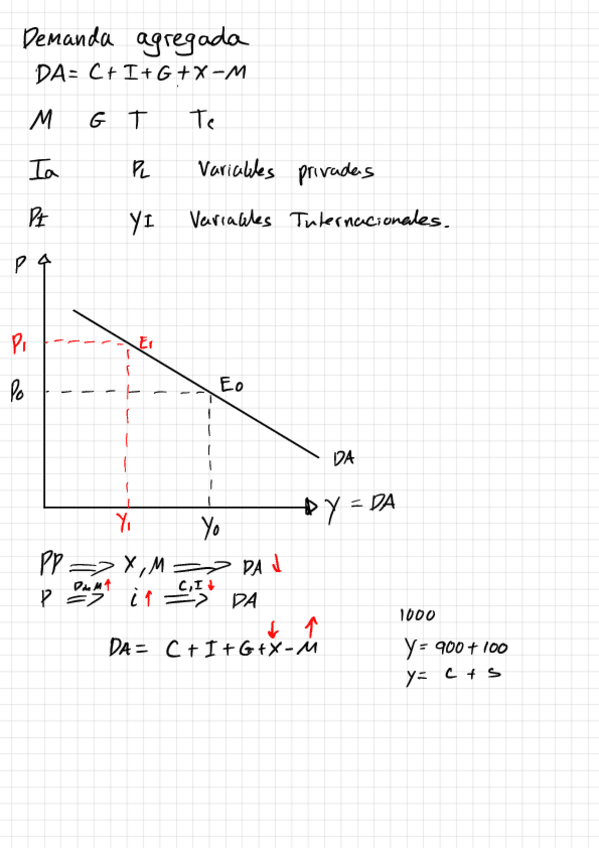 Demanda agregada
DA = C + I + G + X - M
M G T Tc
Ia PL Variables privadas
PI YI Variables Internacionales.
P
P1 E1
P0 E0
DA
Y1 Y0 Y = DA
PP ⟹ X, M ⟹ DA ↓
P ⟹ Da M ↑ i ↑ ⟹ C, I ↓ DA
DA = C + I + G + X ↓ - M ↑
1000
Y = 900 + 100
Y = C + S